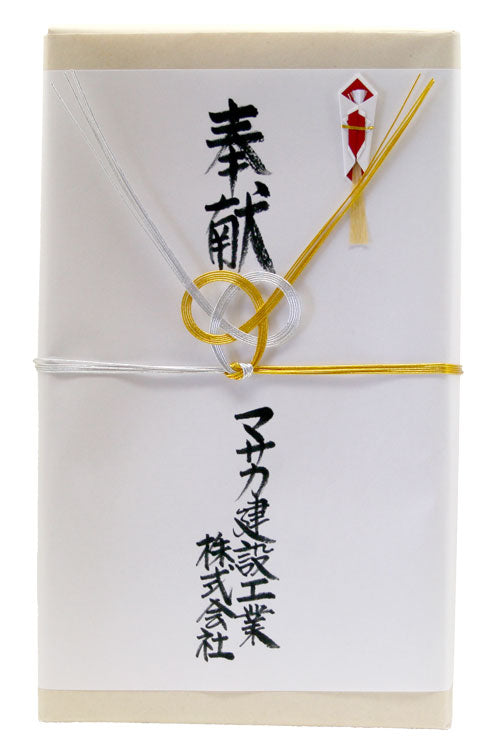 奉献
マサカ建設工業
株式会社